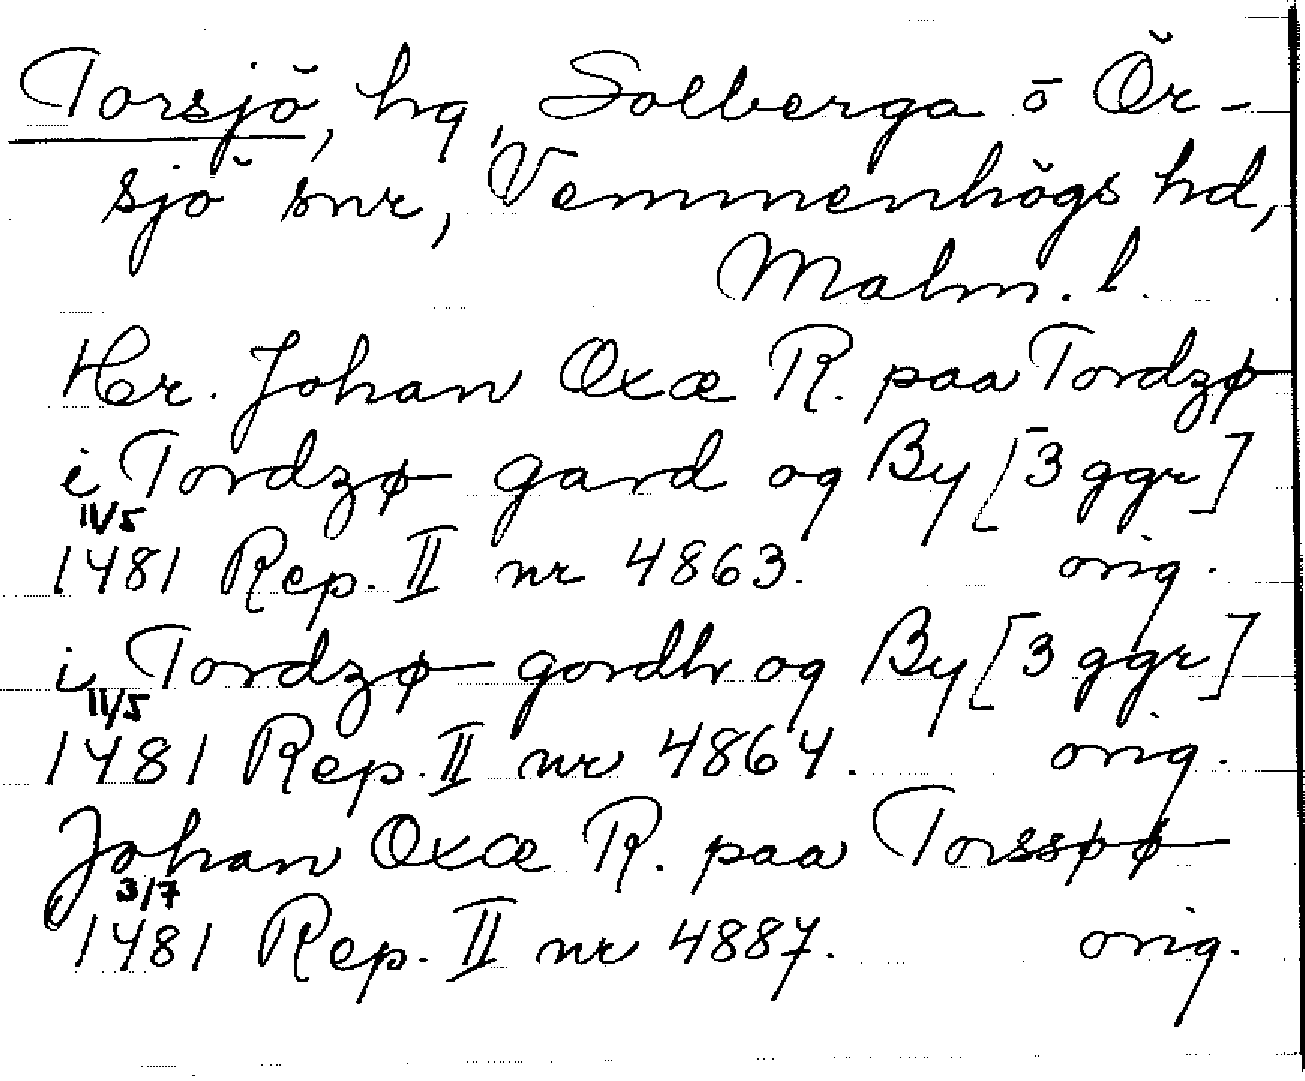 Torsjö, hg, Solberga o Ör-
sjö snr, Vemmenhögs hd,
Malm. l.
Her. Johan Oxæ R. paa Tordzø
i Tordzø gard og By [3 ggr]
11/5
1481 Rep. II nr 4863. orig.
i Tordzø gordh og By [3 ggr]
11/5
1481 Rep. II nr 4864. orig.
Johan Oxæ R. paa Torssøø
3/7
1481 Rep. II nr 4887. orig.